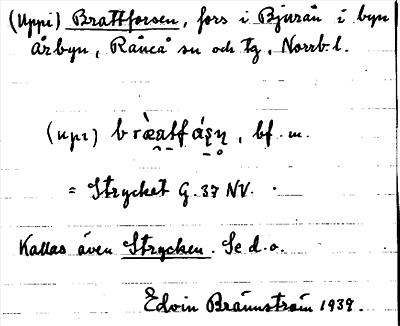 (Uppi) Brattforsen, fors i Bjurån i byn
Årbyn, Råneå sn och tg, Norrb. l.
(upı) , bf. m.
= Strycket G. 37 NV.
Kallas även Strycken. Se d. o.
Edvin Brännström 1939.